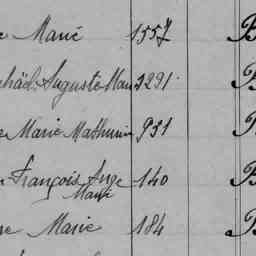 e Marie 1557 B
phaël Auguste Mari 3291 B
e Marie Mathurin 931
François Ange 140 B
Marie
re Marie 184 B